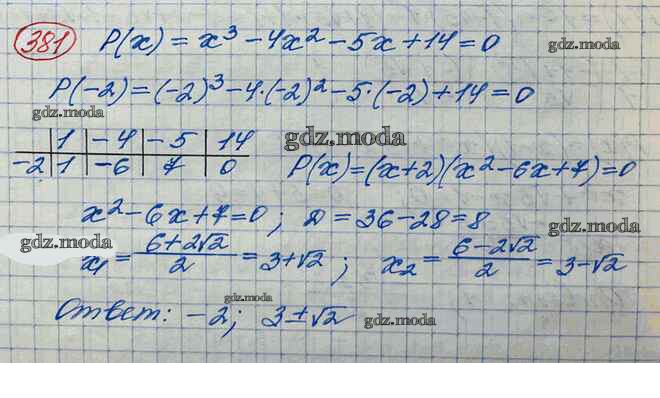 381 P(x) = x³ - 4x² - 5x + 14 = 0
gdz.moda
P(-2) = (-2)³ - 4·(-2)² - 5·(-2) + 14 = 0
gdz.moda
1 | -4 | -5 | 14
gdz.moda
-2 | 1 | -6 | 7 | 0 P(x) = (x+2)(x² - 6x + 7) = 0
x² - 6x + 7 = 0; D = 36 - 28 = 8
gdz.moda gdz.moda
x₁ = (6+2√2)/2 = 3+√2; x₂ = (6-2√2)/2 = 3-√2
gdz.moda
Ответ: -2; 3±√2 gdz.moda